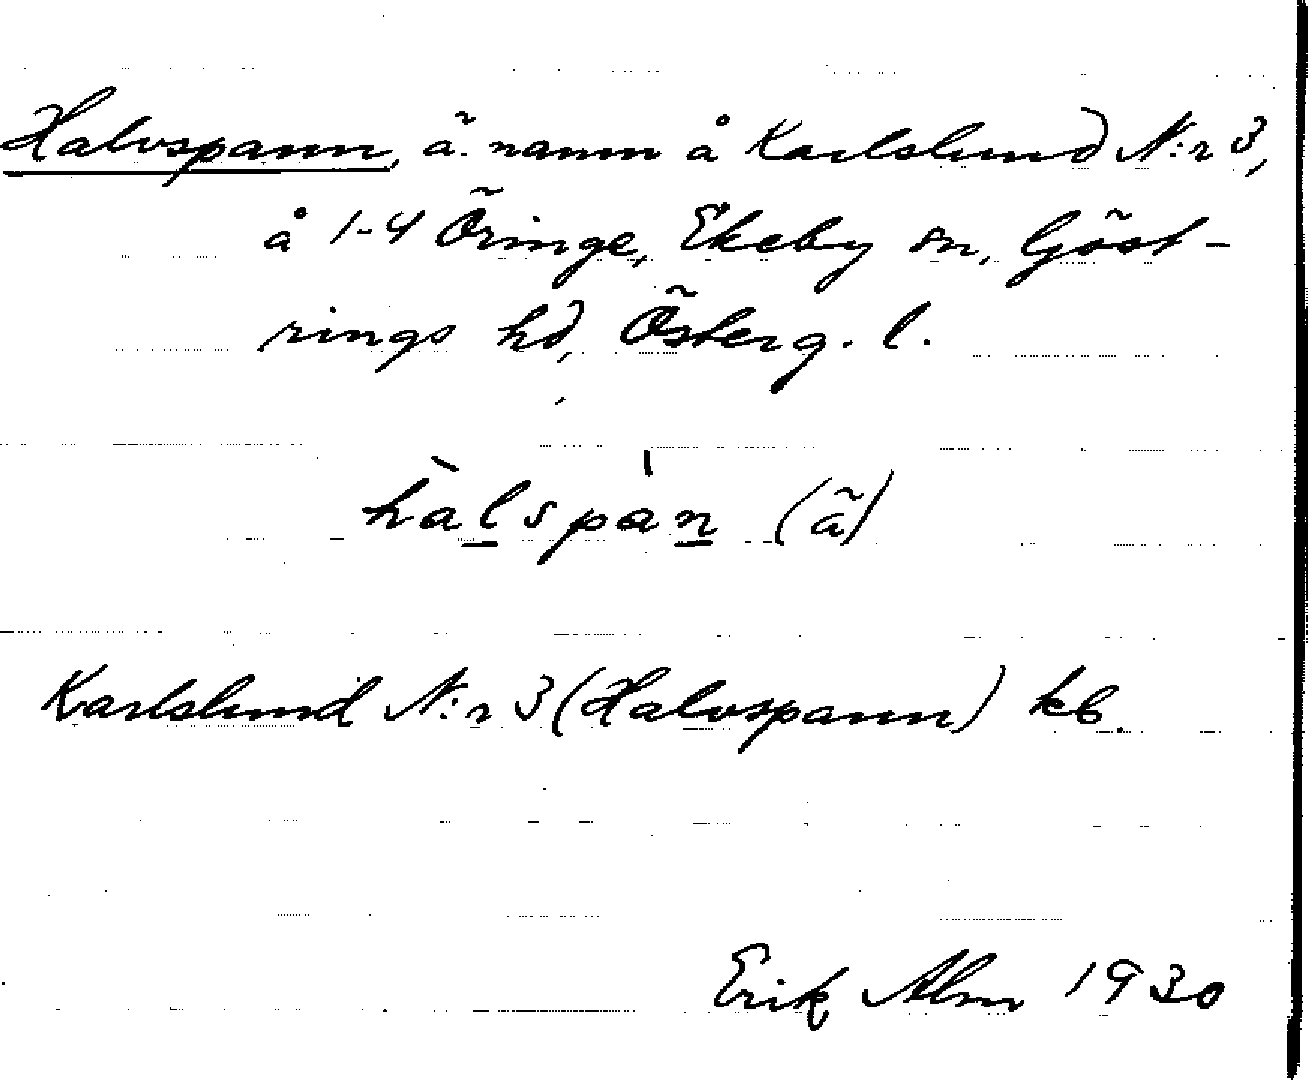 Halvspann, ä. namn å Karlslund N:r 3,
å 1-4 Öringe, Ekeby sn, Göst-
rings hd, Österg. l.
hàlspàn (ä)
Karlslund N:r 3 (Halvspann) kb.
Erik Alm 1930